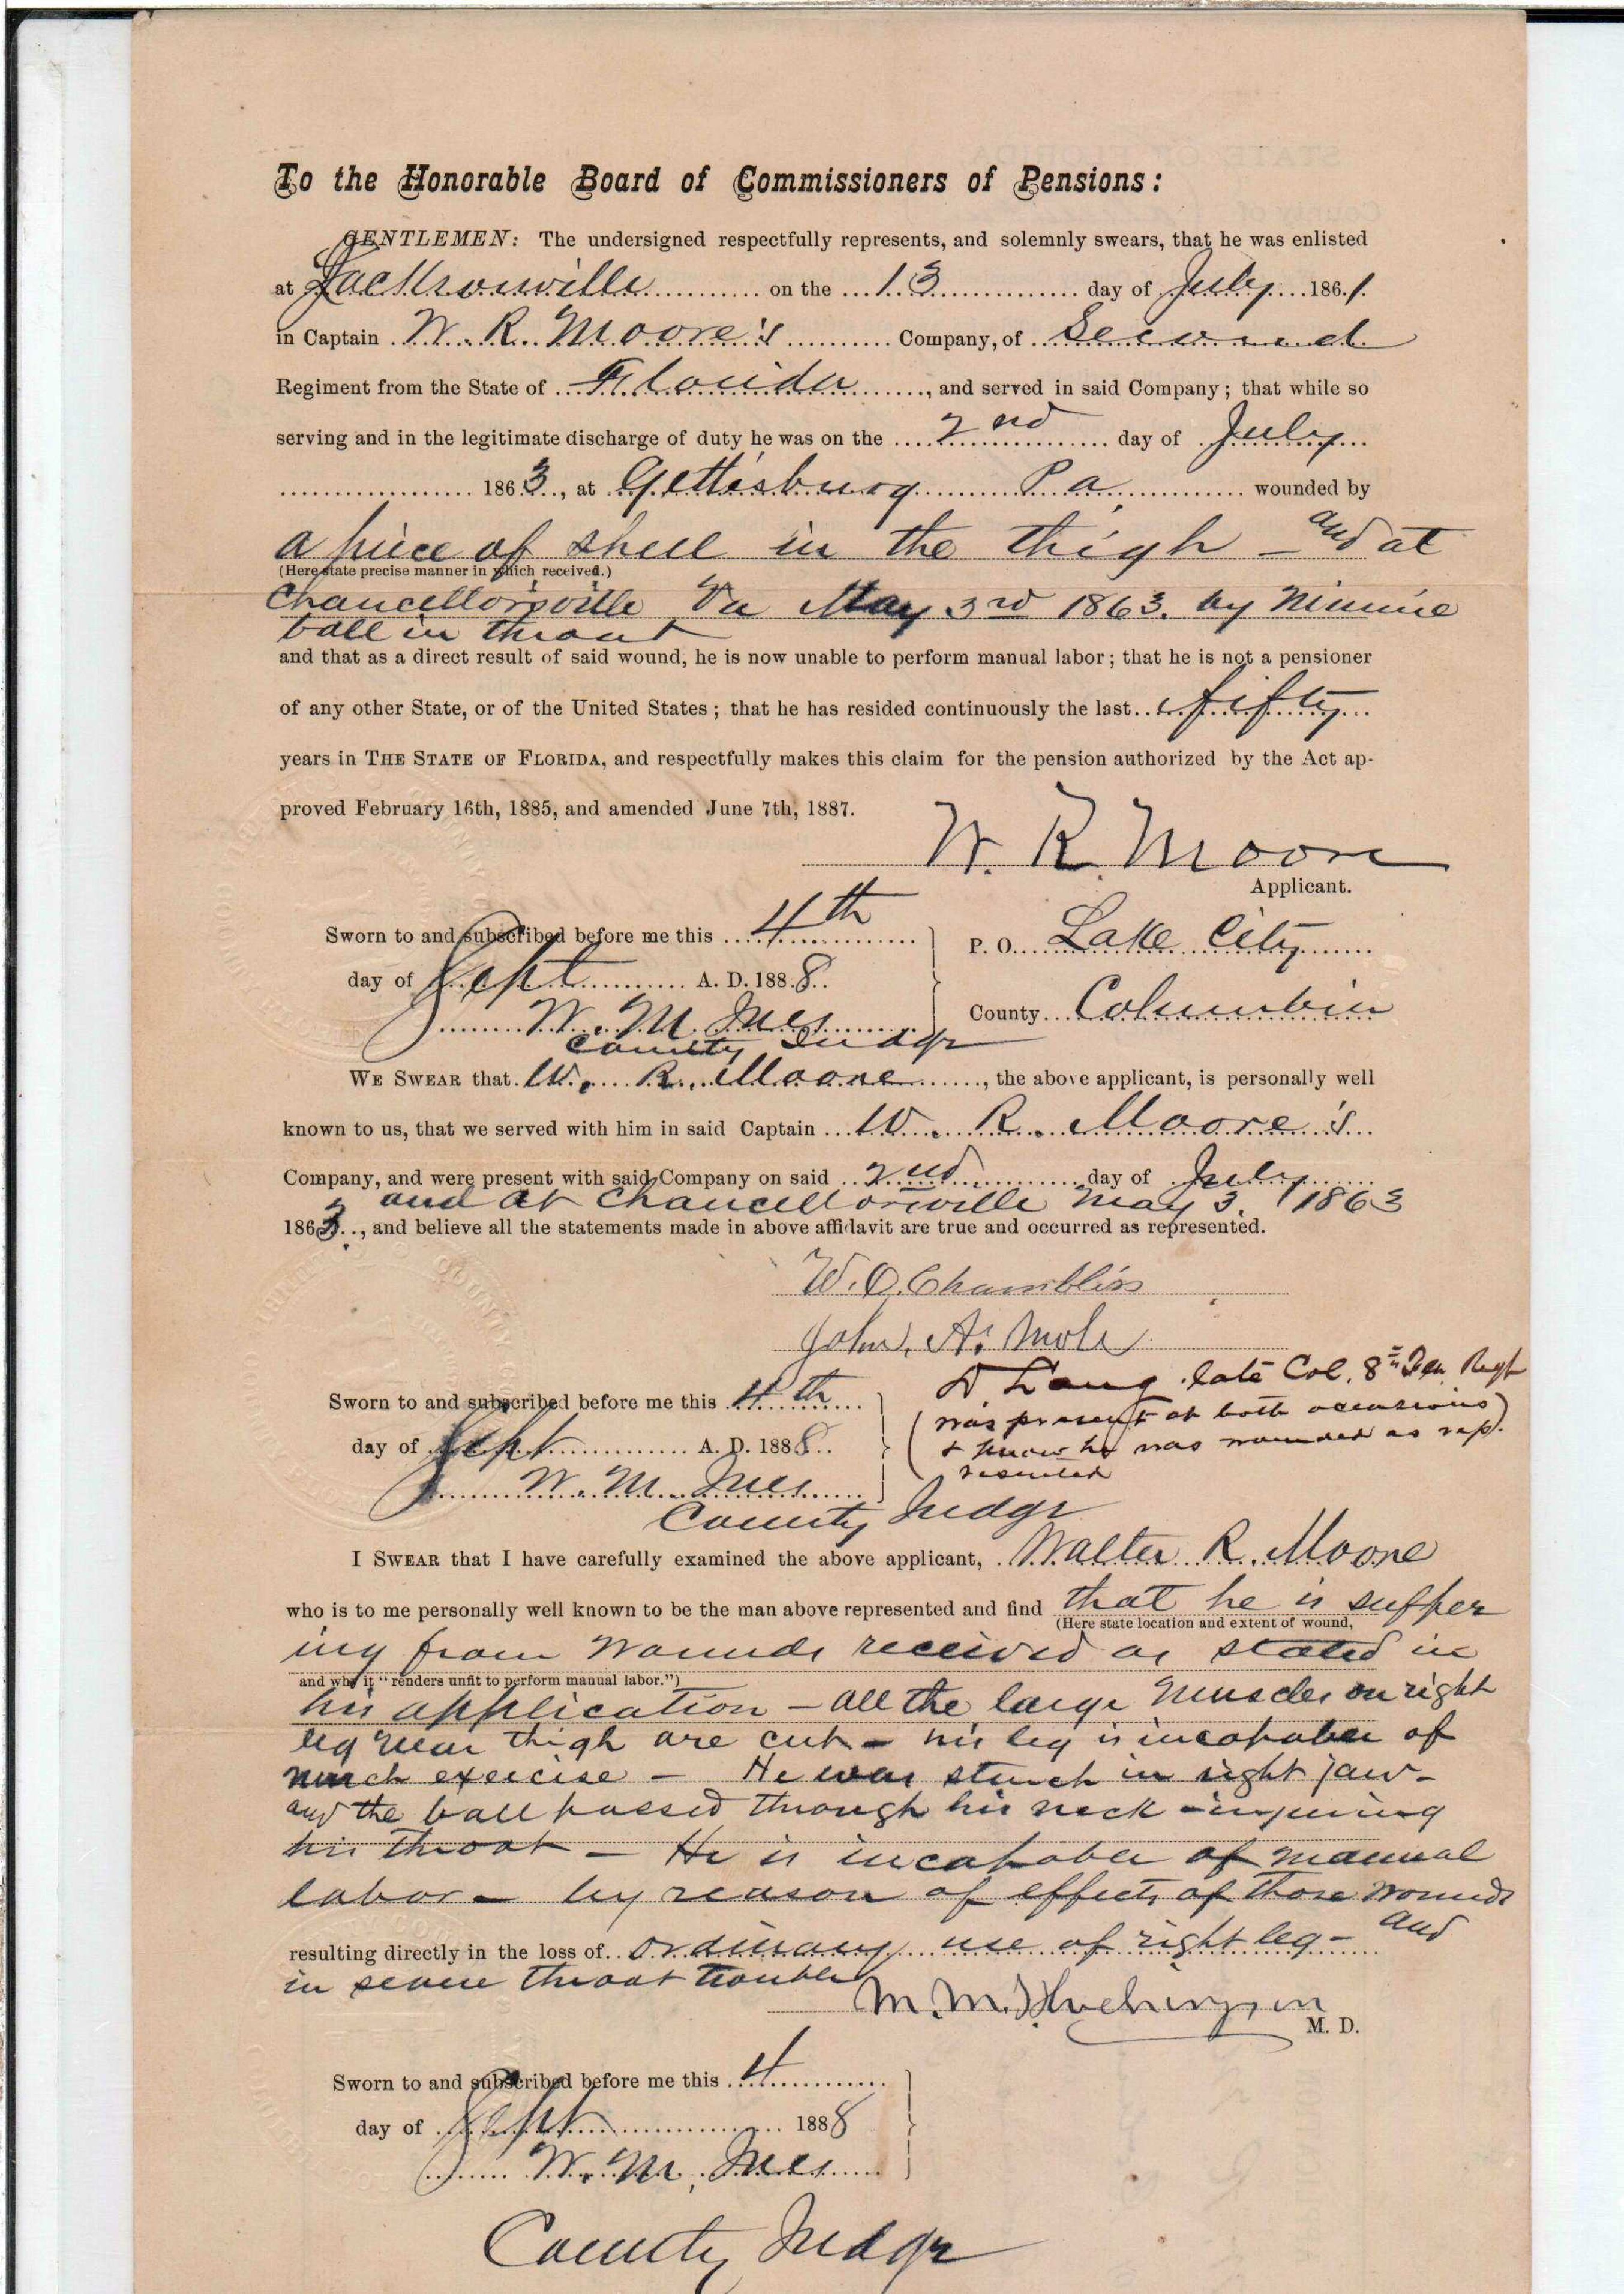 To the Honorable Board of Commissioners of Pensions:
GENTLEMEN: The undersigned respectfully represents, and solemnly swears, that he was enlisted
at Jacksonville on the 13 day of July 1861.
in Captain W. R. Moore's Company, of Second
Regiment from the State of Florida, and served in said Company; that while so
serving and in the legitimate discharge of duty he was on the 2nd day of July
1863, at Gettisburg Pa. wounded by
a piece of shell in the thigh – and at
(Here state precise manner in which received.)
Chancellorsville Va May 3rd 1863. by Minnie
ball in throat
and that as a direct result of said wound, he is now unable to perform manual labor; that he is not a pensioner
of any other State, or of the United States; that he has resided continuously the last fifty
years in THE STATE OF FLORIDA, and respectfully makes this claim for the pension authorized by the Act ap-
proved February 16th, 1885, and amended June 7th, 1887.
W. R. Moore
Applicant.
Sworn to and subscribed before me this 4th
P. O. Lake City
day of Sept A. D. 1888.
County Columbia
W. M. Ives
County Judge
WE SWEAR that W. R. Moore, the above applicant, is personally well
known to us, that we served with him in said Captain W. R. Moore's
Company, and were present with said Company on said 2nd day of July
and at Chancellorsville May 3. 1863
1863, and believe all the statements made in above affidavit are true and occurred as represented.
W. O. Chambliss
John. A.
D Lang late Col. 8th Regt
Sworn to and subscribed before me this 4th
(was present at both occasions)
day of Sept A. D. 1888
& know he was wounded as rep-
resented
W. M. Ives
County Judge
I SWEAR that I have carefully examined the above applicant, Walter R. Moore
who is to me personally well known to be the man above represented and find that he is suffer
(Here state location and extent of wound,
ing from wounds received as stated in
and why it "renders unfit to perform manual labor.")
his application – all the large muscles on right
leg near thigh are cut – his leg is incapable of
much exercise – He was struck in right jaw –
and the ball passed through his neck – injuring
his throat – He is incapable of manual
labor – by reason of effects of those wounds
resulting directly in the loss of ordinary use of right leg – and
in severe throat trouble
M. M.
M. D.
Sworn to and subscribed before me this 4
day of Sept 1888
W. M. Ives
County Judge